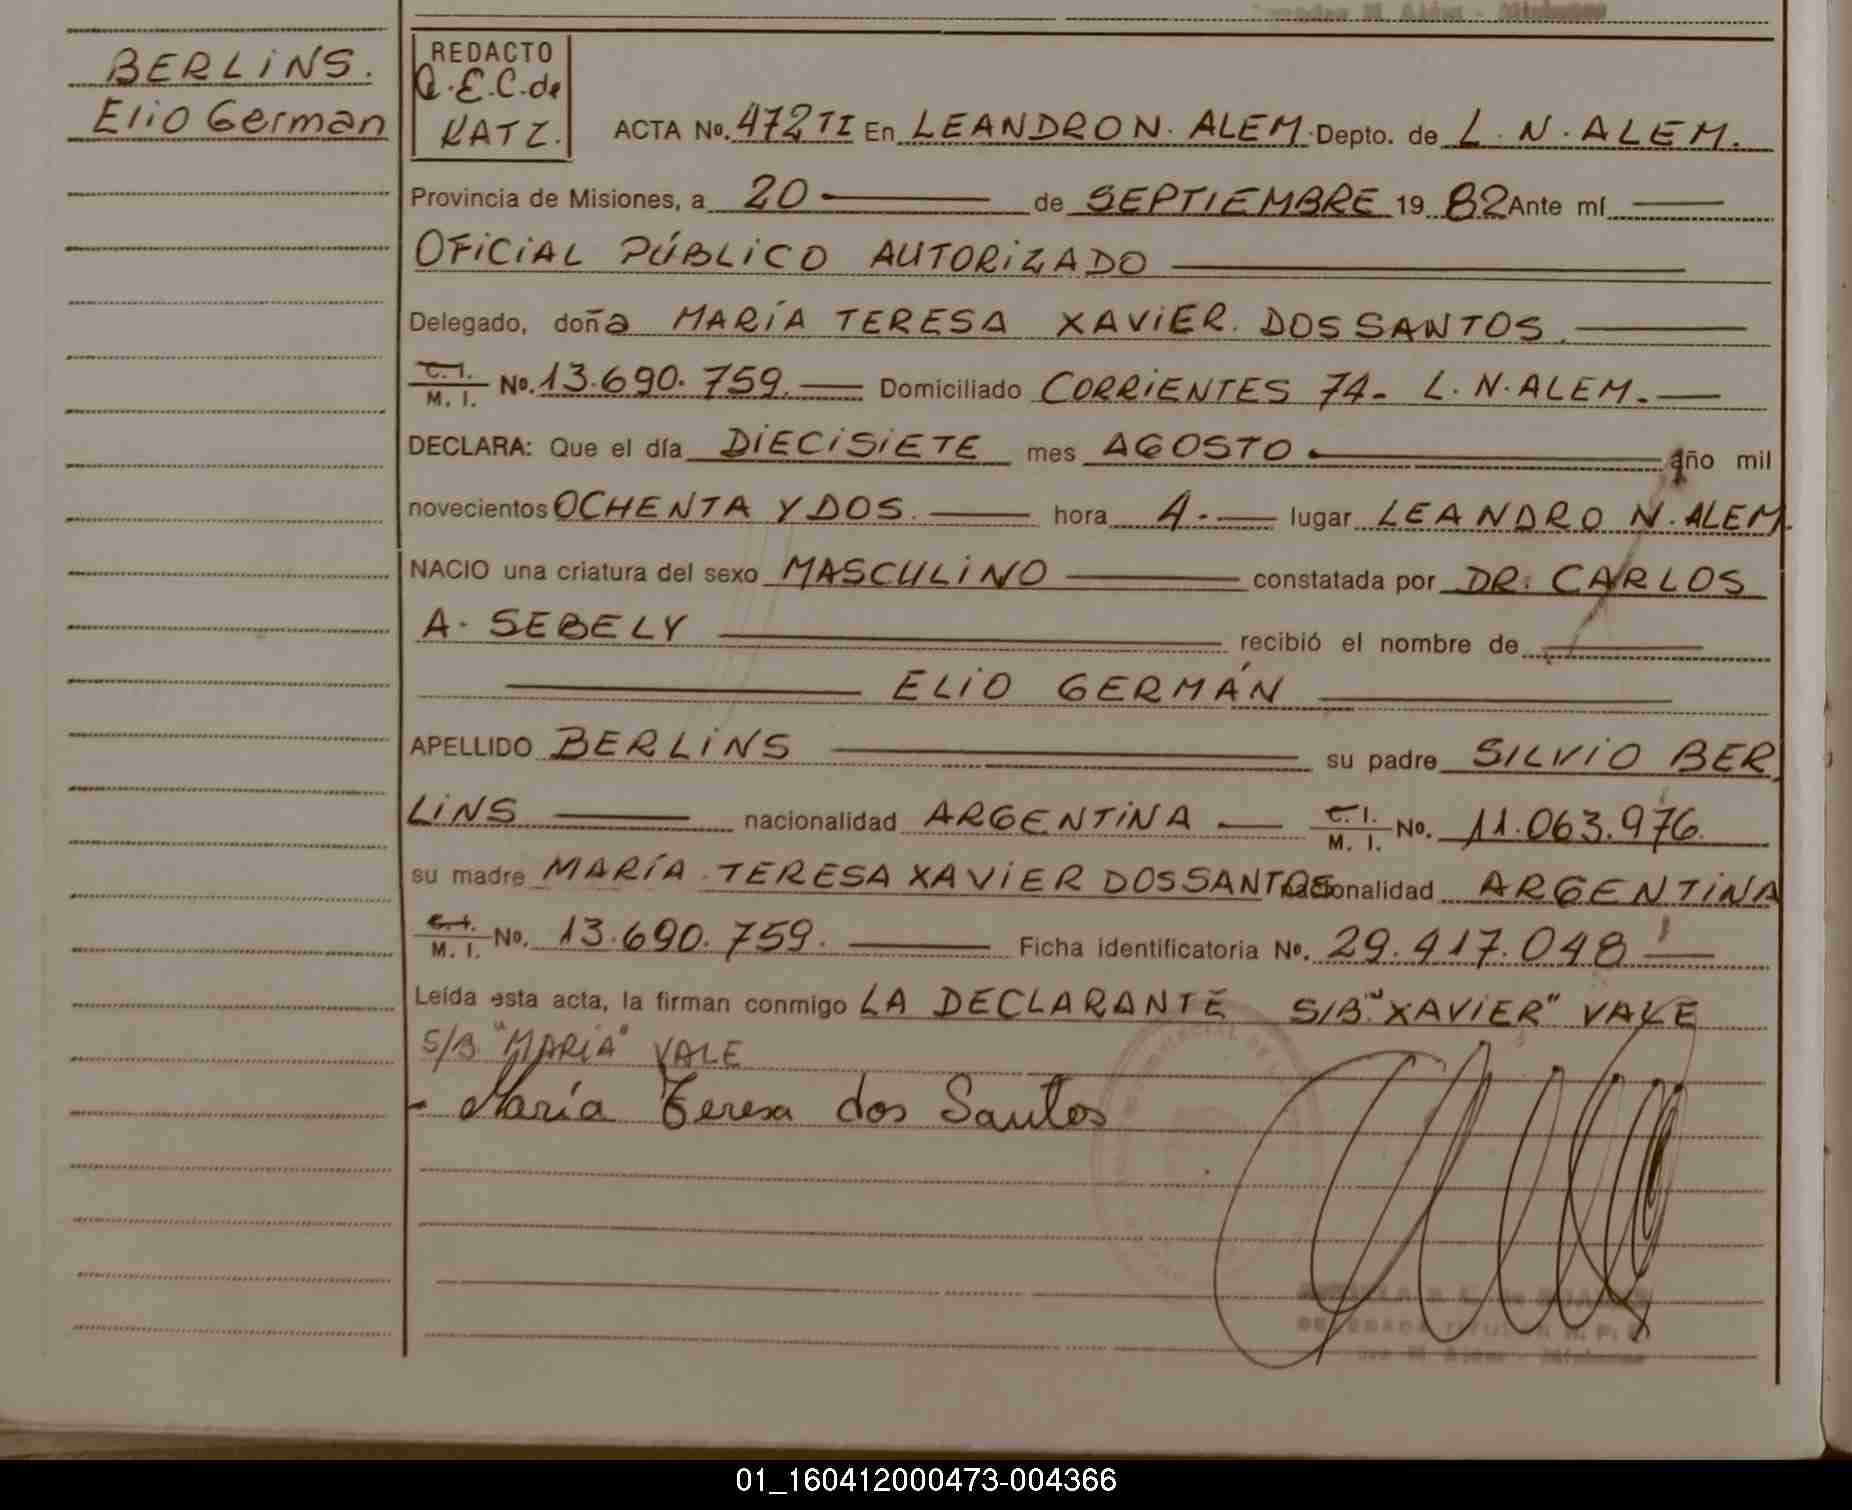 BERLINS.
Elio German
REDACTO
Q.E.C. de
KATZ.
ACTA No. 472 TI En LEANDRO N. ALEM. Depto. de L. N. ALEM.
Provincia de Misiones, a 20 de SEPTIEMBRE 19 82 Ante mí
OFICIAL PÚBLICO AUTORIZADO
Delegado, doña MARÍA TERESA XAVIER DOS SANTOS.
C. I. M. I. No. 13.690.759. Domiciliado CORRIENTES 74- L. N. ALEM.
DECLARA: Que el día DIECISIETE mes AGOSTO año mil
novecientos OCHENTA Y DOS. hora 4. lugar LEANDRO N. ALEM.
NACIO una criatura del sexo MASCULINO constatada por DR. CARLOS
A. SEBELY recibió el nombre de
ELIO GERMÁN
APELLIDO BERLINS su padre SILVIO BER
LINS nacionalidad ARGENTINA C. I. M. I. No. 11.063.976.
su madre MARÍA TERESA XAVIER DOS SANTOS nacionalidad ARGENTINA
C. I. M. I. No. 13.690.759. Ficha identificatoria No. 29.417.048
Leída esta acta, la firman conmigo LA DECLARANTE S/B "XAVIER" VALE
S/B "MARÍA" VALE
- María Teresa dos Santos
01_160412000473-004366